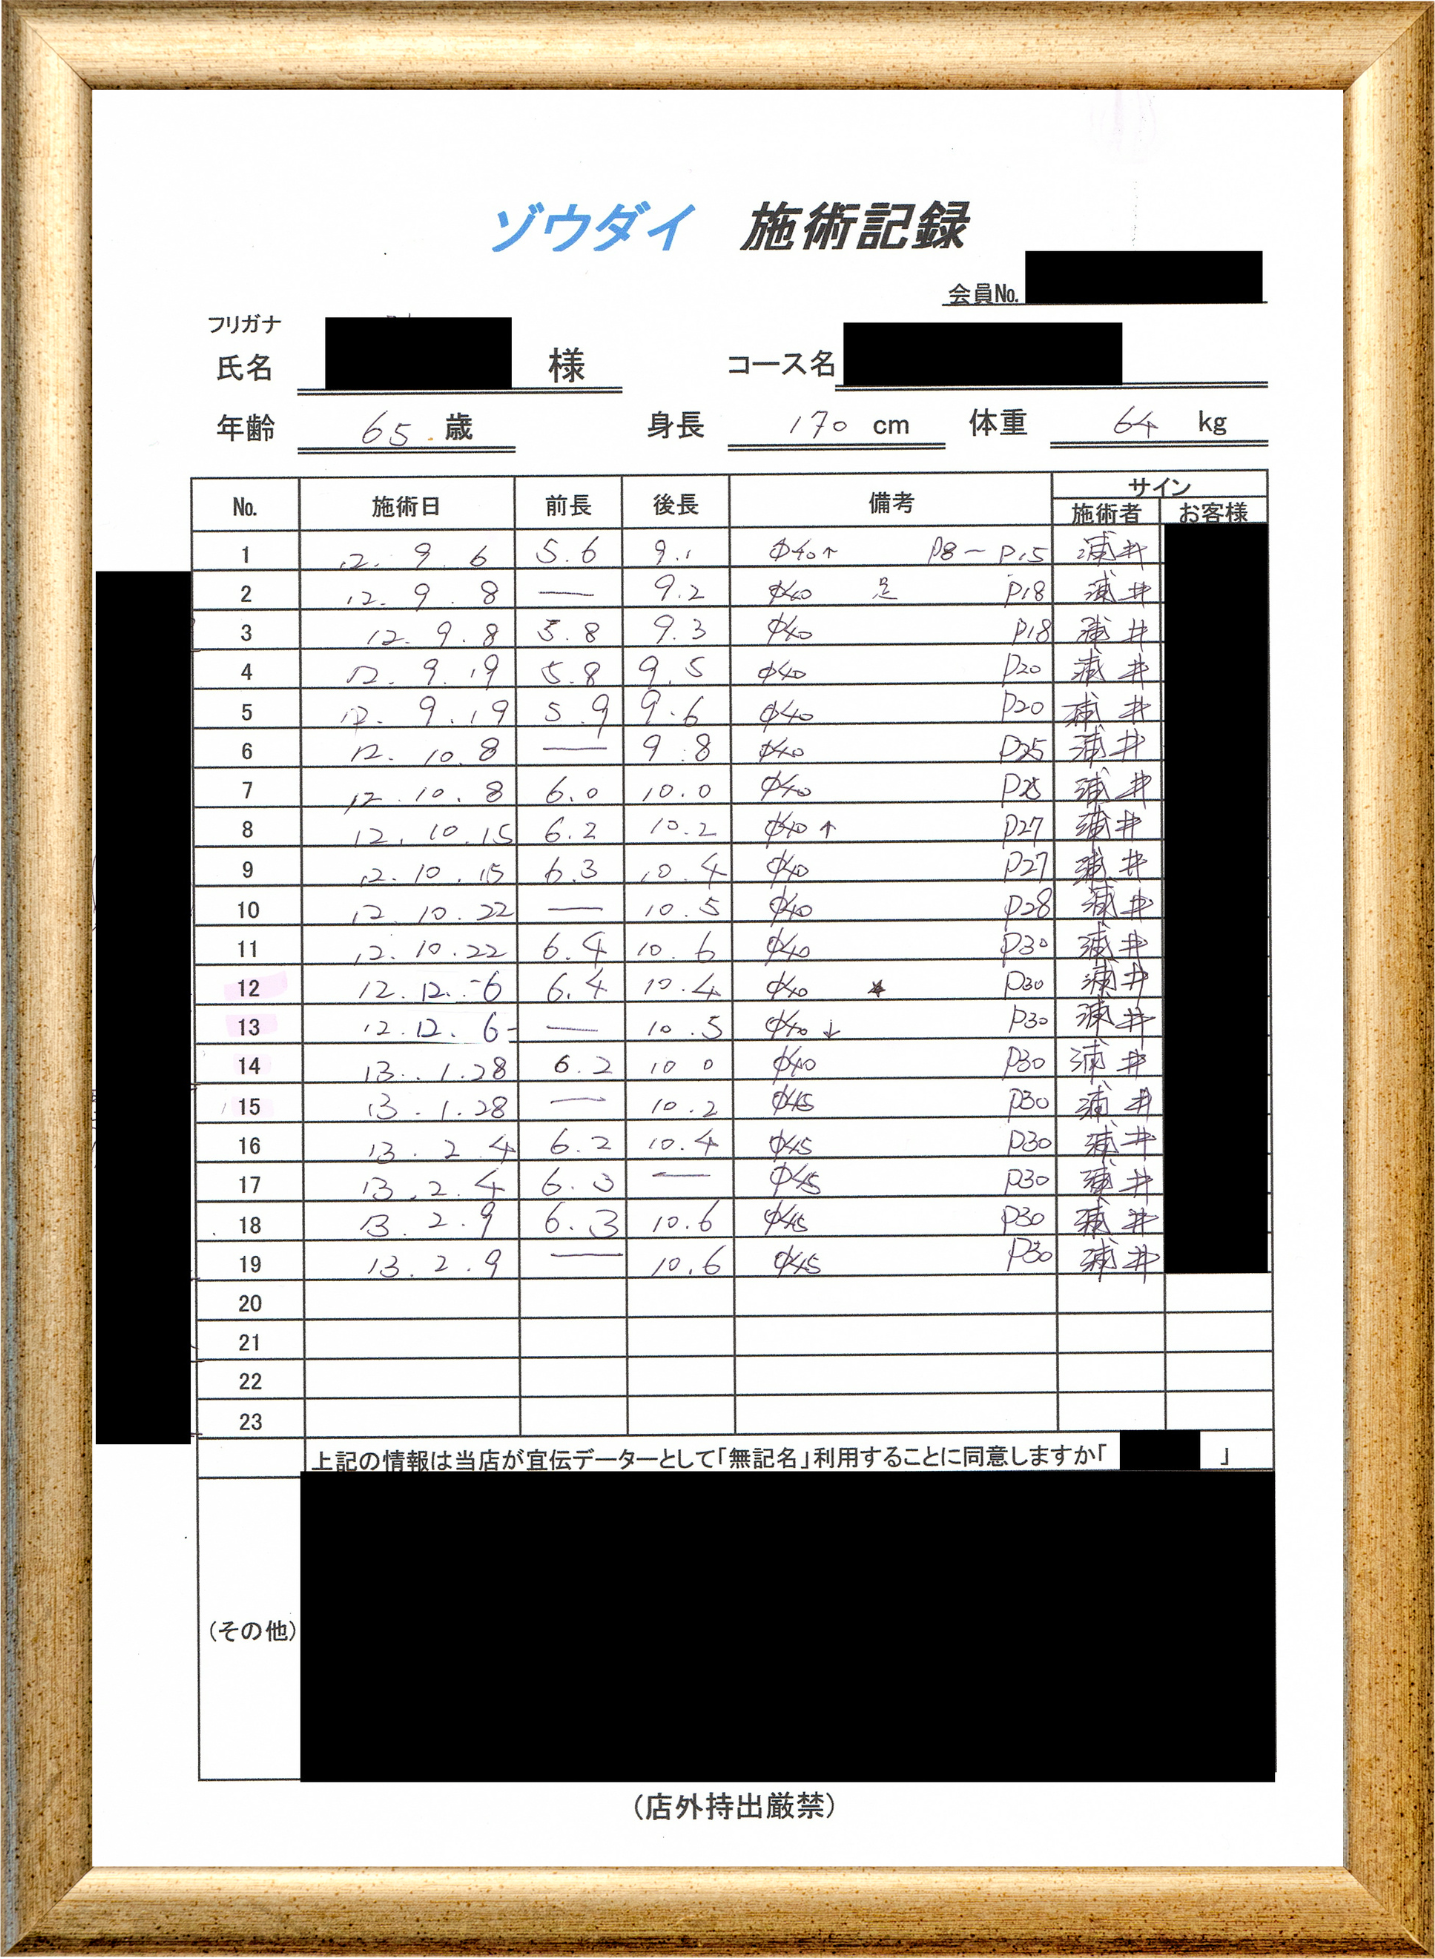 ゾウダイ 施術記録
会員No.
フリガナ
氏名 様 コース名
年齢 65 歳 身長 170 cm 体重 64 kg
No. 施術日 前長 後長 備考 サイン
施術者 お客様
1 12. 9. 6 5.6 9.1 φ40↑ P8〜P15 浦井
2 12. 9. 8 — 9.2 φ40 足 P18 浦井
3 12. 9. 8 5.8 9.3 φ40 P18 浦井
4 12. 9. 19 5.8 9.5 φ40 P20 浦井
5 12. 9. 19 5.9 9.6 φ40 P20 浦井
6 12. 10. 8 — 9.8 φ40 P25 浦井
7 12. 10. 8 6.0 10.0 φ40 P25 浦井
8 12. 10. 15 6.2 10.2 φ40↑ P27 浦井
9 12. 10. 15 6.3 10.4 φ40 P27 浦井
10 12. 10. 22 — 10.5 φ40 P28 浦井
11 12. 10. 22 6.4 10.6 φ40 P30 浦井
12 12. 12. 6 6.4 10.4 φ40 ★ P30 浦井
13 12. 12. 6 — 10.5 φ40↓ P30 浦井
14 13. 1. 28 6.2 10.0 φ40 P30 浦井
15 13. 1. 28 — 10.2 φ45 P30 浦井
16 13. 2. 4 6.2 10.4 φ45 P30 浦井
17 13. 2. 4 6.3 — φ45 P30 浦井
18 13. 2. 9 6.3 10.6 φ45 P30 浦井
19 13. 2. 9 — 10.6 φ45 P30 浦井
20
21
22
23
上記の情報は当店が宣伝データーとして「無記名」利用することに同意しますか「 」
(その他)
(店外持出厳禁)